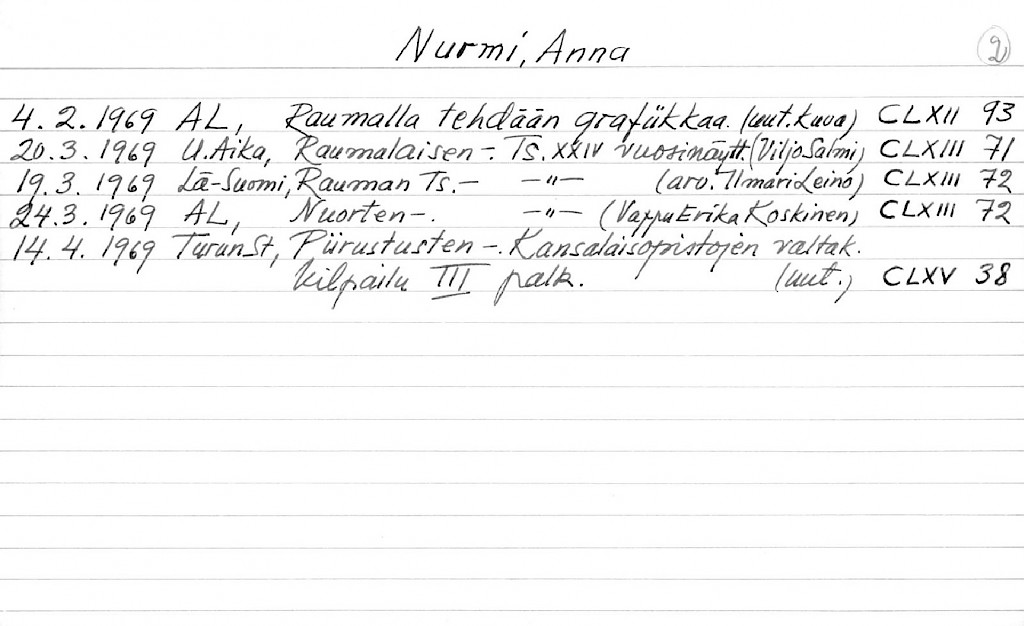 Nurmi, Anna 2
4. 2. 1969 AL, Raumalla tehdään grafiikkaa. (uut. kuva) CLXII 93
20. 3. 1969 U. Aika, Raumalaisen -. Ts. XXIV vuosinäytt. (Viljo Salmi) CLXIII 71
19. 3. 1969 Lä-Suomi, Rauman Ts. - -"- (arv. Ilmari Leino) CLXIII 72
24. 3. 1969 AL, Nuorten -. -"- (Vappu Erika Koskinen) CLXIII 72
14. 4. 1969 TurunSt, Piirustusten -. Kansalaisopistojen valtak.
kilpailu III palk. (uut.) CLXV 38